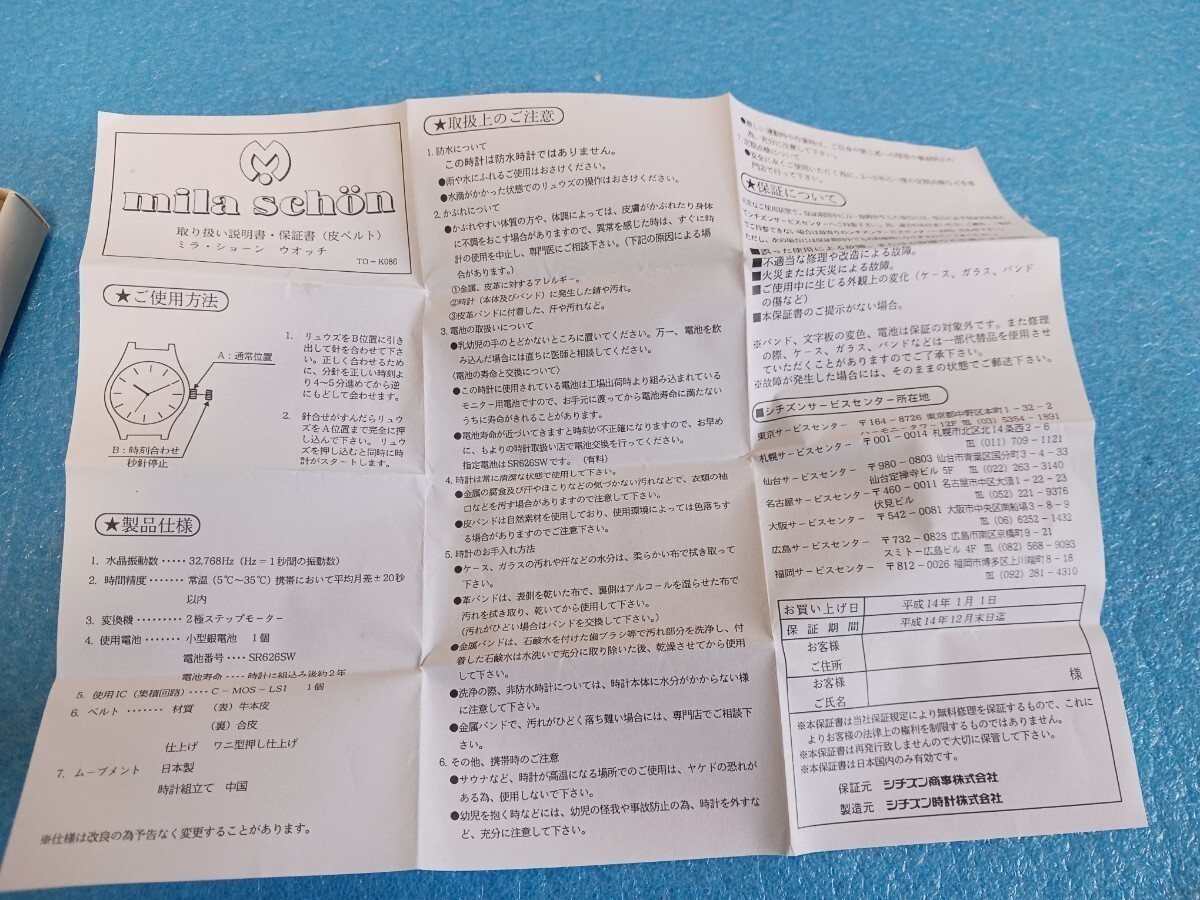 mila schön
取り扱い説明書・保証書(皮ベルト)
ミラ・ショーン ウオッチ
TO-K086
★ご使用方法
A:通常位置
B:時刻合わせ
秒針停止
1. リュウズをB位置に引き
出して針を合わせて下さ
い。正しく合わせるため
に、分針を正しい時刻よ
り4〜5分進めてから逆
にもどして合わせます。
2. 針合せがすんだらリュウ
ズをA位置まで完全に押
し込んで下さい。リュウ
ズを押し込むと同時に時
計がスタートします。
★製品仕様
1. 水晶振動数‥‥‥32,768Hz(Hz=1秒間の振動数)
2. 時間精度‥‥‥‥常温(5℃〜35℃)携帯において平均月差±20秒
以内
3. 変換機‥‥‥‥2極ステップモーター
4. 使用電池‥‥‥‥小型銀電池 1個
電池番号‥‥SR626SW
電池寿命‥‥時計に組込み後約2年
5. 使用IC(集積回路)‥‥C-MOS-LSI 1個
6. ベルト‥‥‥‥ 材質 (表)牛本皮
(裏)合皮
仕上げ ワニ型押し仕上げ
7. ムーブメント 日本製
時計組立て 中国
※仕様は改良の為予告なく変更することがあります。
★取扱上のご注意
1. 防水について
この時計は防水時計ではありません。
●雨や水にふれるご使用はおさけください。
●水滴がかかった状態でのリュウズの操作はおさけください。
2. かぶれについて
●かぶれやすい体質の方や、体調によっては、皮膚がかぶれたり身体
に不調をおこす場合がありますので、異常を感じた時は、すぐに時
計の使用を中止し、専門医にご相談下さい。(下記の原因による場
合があります。)
①金属、皮革に対するアレルギー。
②時計(本体及びバンド)に発生した錆や汚れ。
③皮革バンドに付着した、汗や汚れなど。
3. 電池の取扱いについて
●乳幼児の手のとどかないところに置いてください。万一、電池を飲
み込んだ場合には直ちに医師と相談してください。
〈電池の寿命と交換について〉
●この時計に使用されている電池は工場出荷時より組み込まれている
モニター用電池ですので、お手元に渡ってから電池寿命に満たない
うちに寿命がきれることがあります。
●電池寿命が近づいてきますと時刻が不正確になりますので、お早め
に、もよりの時計取扱い店で電池交換を行ってください。
指定電池はSR626SWです。(有料)
4. 時計は常に清潔な状態で使用して下さい。
●金属の腐食及び汗やほこりなどの気づかない汚れなどで、衣類の袖
口などを汚す場合がありますので注意して下さい。
●皮バンドは自然素材を使用しており、使用環境によっては色落ちす
る場合がありますのでご注意下さい。
5. 時計のお手入れ方法
●ケース、ガラスの汚れや汗などの水分は、柔らかい布で拭き取って
下さい。
●革バンドは、表側を乾いた布で、裏側はアルコールを湿らせた布で
汚れを拭き取り、乾いてから使用して下さい。
(汚れがひどい場合はバンドを交換して下さい。)
●金属バンドは、石鹸水を付けた歯ブラシ等で汚れ部分を洗浄し、付
着した石鹸水は水洗いで充分に取り除いた後、乾燥させてから使用
して下さい。
●洗浄の際、非防水時計については、時計本体に水分がかからない様
に注意して下さい。
●金属バンドで、汚れがひどく落ち難い場合には、専門店でご相談下
さい。
6. その他、携帯時のご注意
●サウナなど、時計が高温になる場所でのご使用は、ヤケドの恐れが
ある為、使用しないで下さい。
●幼児を抱く時などには、幼児の怪我や事故防止の為、時計を外すな
ど、充分に注意して下さい。
為、充分に注意して下さい。
7. 定期点検について
門店で行って下さい。
★保証について
■誤った使用による故障
■不適当な修理や改造による故障。
■火災または天災による故障。
■ご使用中に生じる外観上の変化(ケース、ガラス、バンド
の傷など)
■本保証書のご提示がない場合。
※バンド、文字板の変色、電池は保証の対象外です。また修理
の際、ケース、ガラス、バンドなどは一部代替品を使用させ
ていただくことがありますのでご了承下さい。
※故障が発生した場合には、そのままの状態でご郵送下さい。
■シチズンサービスセンター所在地
東京サービスセンター 〒164-8726 東京都中野区本町1-32-2
ハーモニータワー12F ☎(03) 5354-1891
札幌サービスセンター 〒001-0014 札幌市北区北14条西2-6
☎(011) 709-1121
仙台サービスセンター 〒980-0803 仙台市青葉区国分町3-4-33
仙台定禅寺ビル 5F ☎(022) 263-3140
名古屋サービスセンター 〒460-0011 名古屋市中区大須1-22-23
伏見ビル ☎(052) 221-9376
大阪サービスセンター 〒542-0081 大阪市中央区南船場3-8-9
☎(06) 6252-1432
広島サービスセンター 〒732-0828 広島市南区京橋町9-21
スミトー広島ビル 4F ☎(082) 568-9093
福岡サービスセンター 〒812-0026 福岡市博多区上川端町8-18
☎(092) 281-4310
お買い上げ日 平成14年1月1日
保証期間 平成14年12月末日迄
お客様
ご住所
お客様
ご氏名 様
※本保証書は当社保証規定により無料修理を保証するもので、これに
よりお客様の法律上の権利を制限するものではありません。
※本保証書は再発行致しませんので大切に保管して下さい。
※本保証書は日本国内のみ有効です。
保証元 シチズン商事株式会社
製造元 シチズン時計株式会社